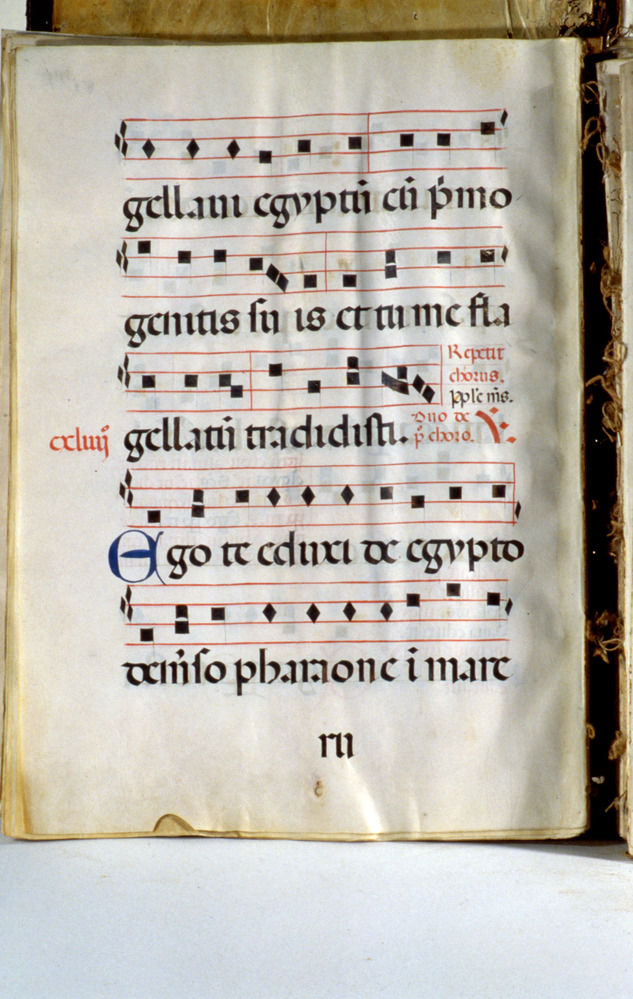 gellaui egyptũ cũ p̃mo
genitis su is et tu me fla
gellatũ tradidisti.
Repetit
chorus.
pople m̃s.
Duo de
p̃ choro. ℣.
Ego te eduxi de egypto
dem̃so pharaone ĩ mare
ru